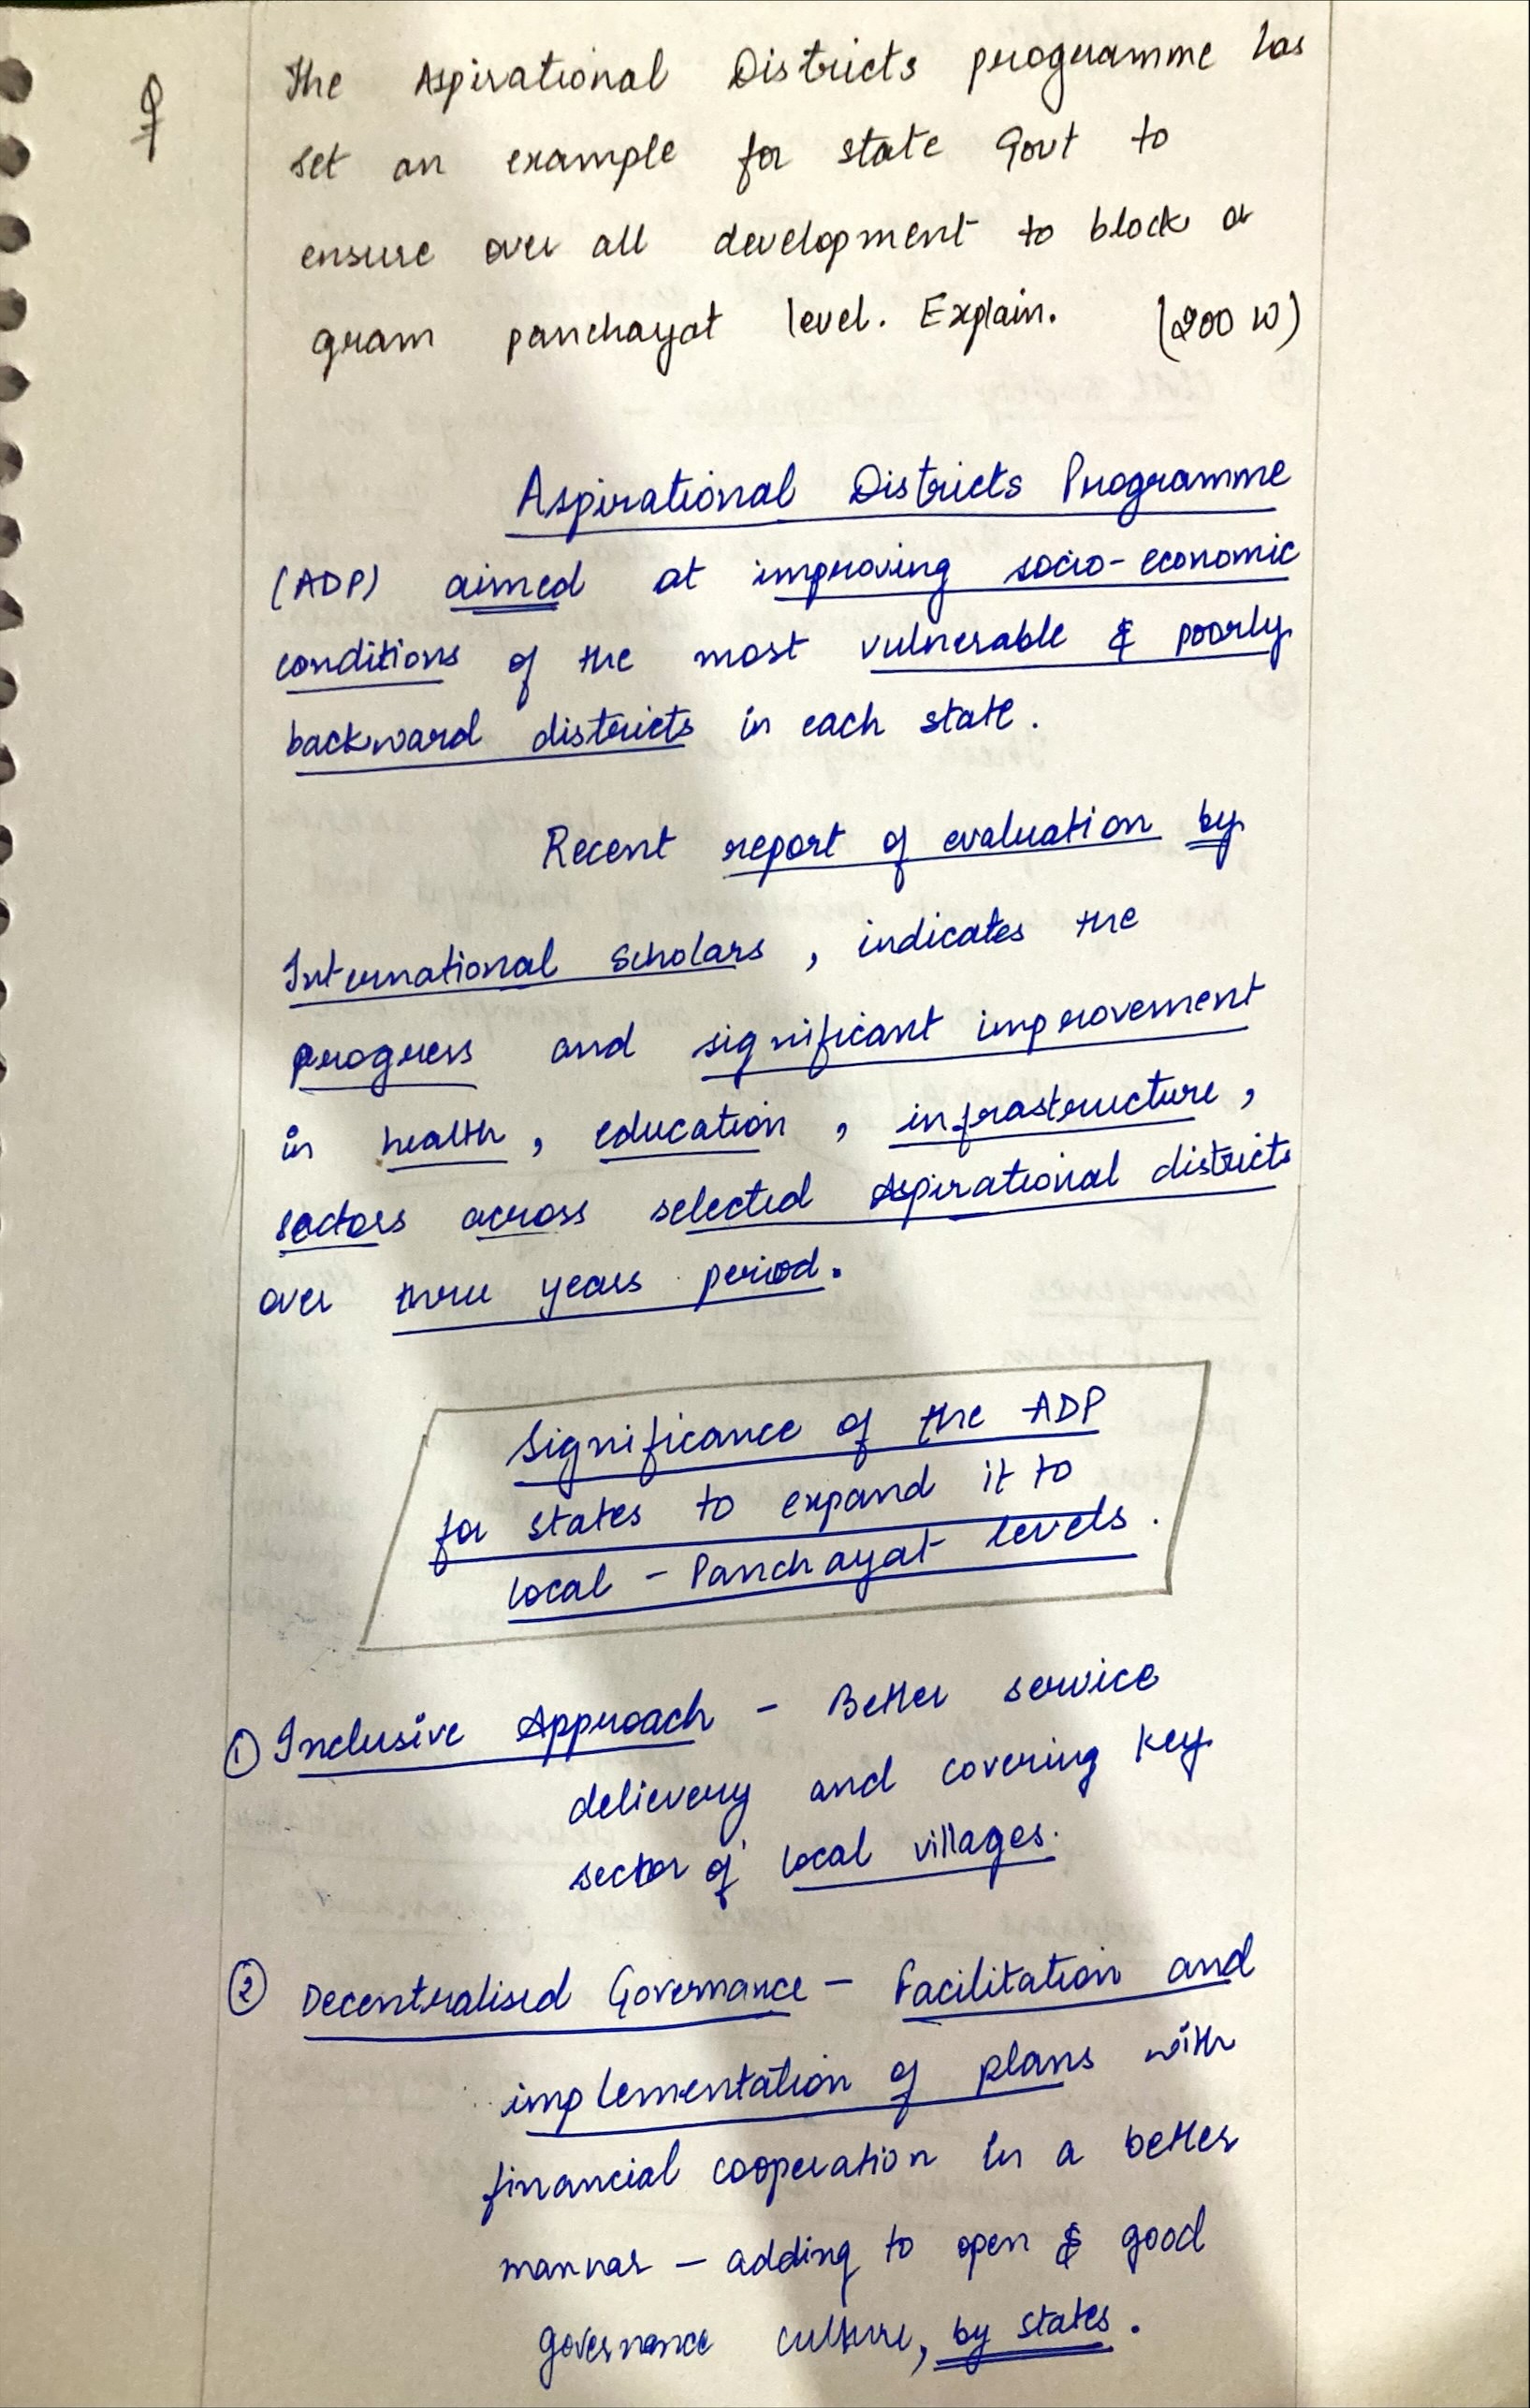 Q
The Aspirational Districts programme has
set an example for state Govt to
ensure over all development to block or
gram panchayat level. Explain. (200 W)
Aspirational Districts Programme
(ADP) aimed at improving socio-economic
conditions of the most vulnerable & poorly
backward districts in each state.
Recent report of evaluation by
International Scholars, indicates the
progress and significant improvement
in health, education, infrastructure,
sectors across selected Aspirational districts
over three years period.
Significance of the ADP
for states to expand it to
local - Panchayat levels.
① Inclusive Approach - Better service
delievery and covering key
sector of local villages.
② Decentralised Governance - Facilitation and
implementation of plans with
financial cooperation in a better
mannar - adding to open & good
governance culture, by states.